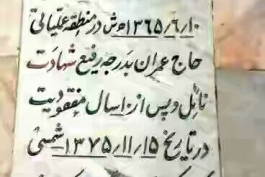 ۱۳۶۵/۶/۱۰ ه‍ ش در منطقه عملیاتی
حاج عمران بدرجه رفیع شهادت
نائل و پس از ۱۰ سال مفقودیت
در تاریخ ۱۳۷۵/۱۱/۱۵ شمسی